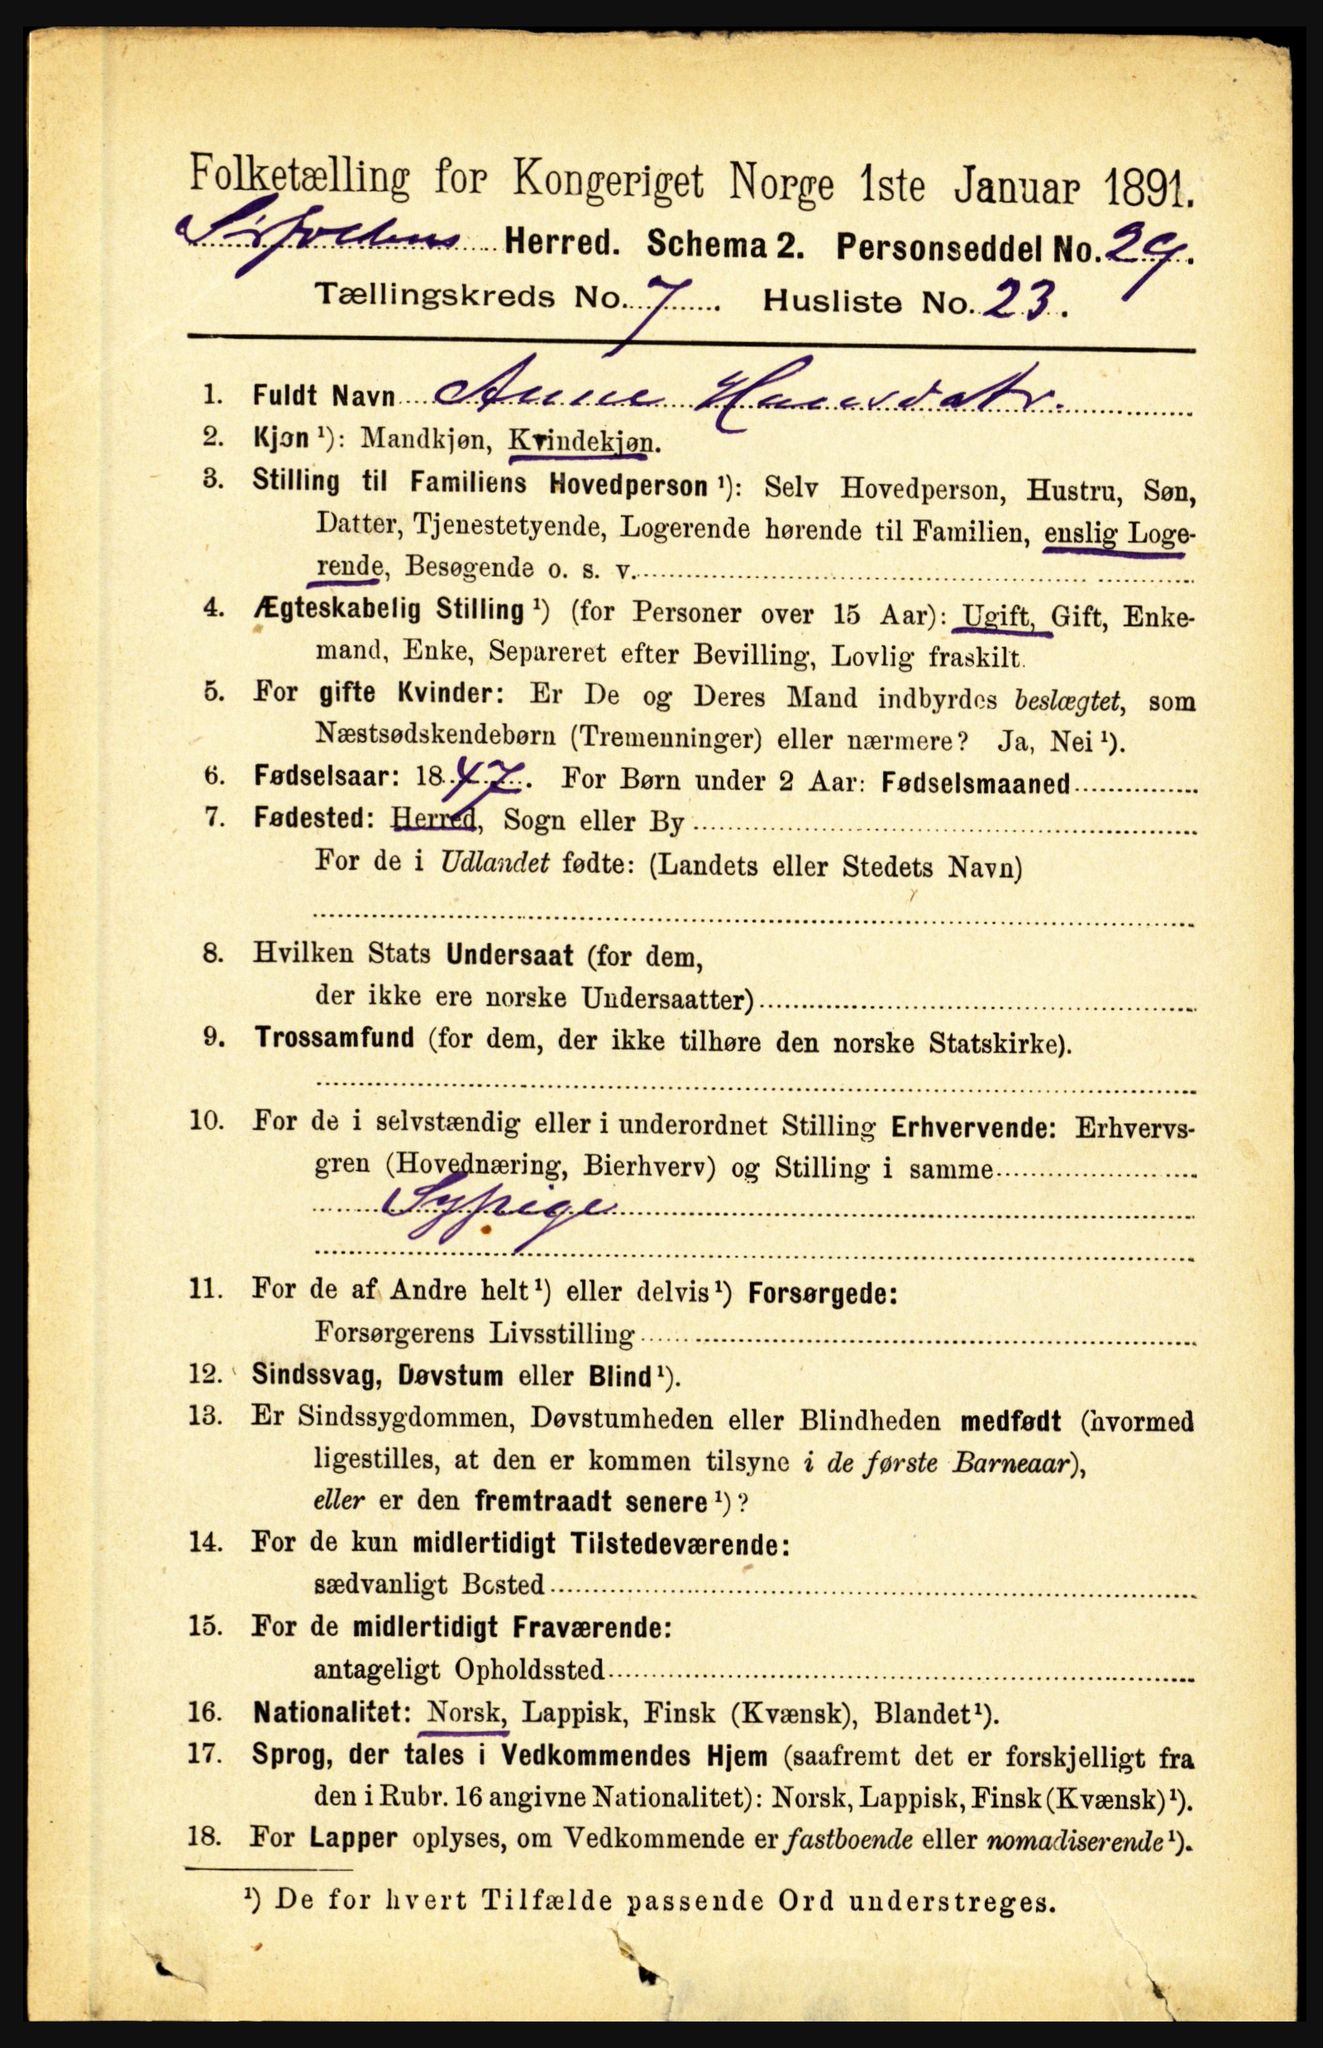 Folketælling for Kongeriget Norge 1ste Januar 1891.
Sørfoldens Herred. Schema 2. Personseddel No. 29.
Tællingskreds No. 7. Husliste No. 23.
1. Fuldt Navn Anne Hansdatr.
2. Kjøn ¹): Mandkjøn, Kvindekjøn.
3. Stilling til Familiens Hovedperson ¹): Selv Hovedperson, Hustru, Søn,
Datter, Tjenestetyende, Logerende hørende til Familien, enslig Loge-
rende, Besøgende o. s. v.
4. Ægteskabelig Stilling ¹) (for Personer over 15 Aar): Ugift, Gift, Enke-
mand, Enke, Separeret efter Bevilling, Lovlig fraskilt.
5. For gifte Kvinder: Er De og Deres Mand indbyrdes beslægtet, som
Næstsødskendebørn (Tremenninger) eller nærmere? Ja, Nei ¹).
6. Fødselsaar: 1847. For Børn under 2 Aar: Fødselsmaaned
7. Fødested: Herred, Sogn eller By
For de i Udlandet fødte: (Landets eller Stedets Navn)
8. Hvilken Stats Undersaat (for dem,
der ikke ere norske Undersaatter)
9. Trossamfund (for dem, der ikke tilhøre den norske Statskirke).
10. For de i selvstændig eller i underordnet Stilling Erhvervende: Erhvervs-
gren (Hovednæring, Bierhverv) og Stilling i samme
Sypige
11. For de af Andre helt ¹) eller delvis ¹) Forsørgede:
Forsørgerens Livsstilling
12. Sindssvag, Døvstum eller Blind ¹).
13. Er Sindssygdommen, Døvstumheden eller Blindheden medfødt (hvormed
ligestilles, at den er kommen tilsyne i de første Barneaar),
eller er den fremtraadt senere ¹)?
14. For de kun midlertidigt Tilstedeværende:
sædvanligt Bosted
15. For de midlertidigt Fraværende:
antageligt Opholdssted
16. Nationalitet: Norsk, Lappisk, Finsk (Kvænsk), Blandet ¹).
17. Sprog, der tales i Vedkommendes Hjem (saafremt det er forskjelligt fra
den i Rubr. 16 angivne Nationalitet): Norsk, Lappisk, Finsk (Kvænsk) ¹).
18. For Lapper oplyses, om Vedkommende er fastboende eller nomadiserende ¹).
¹) De for hvert Tilfælde passende Ord understreges.